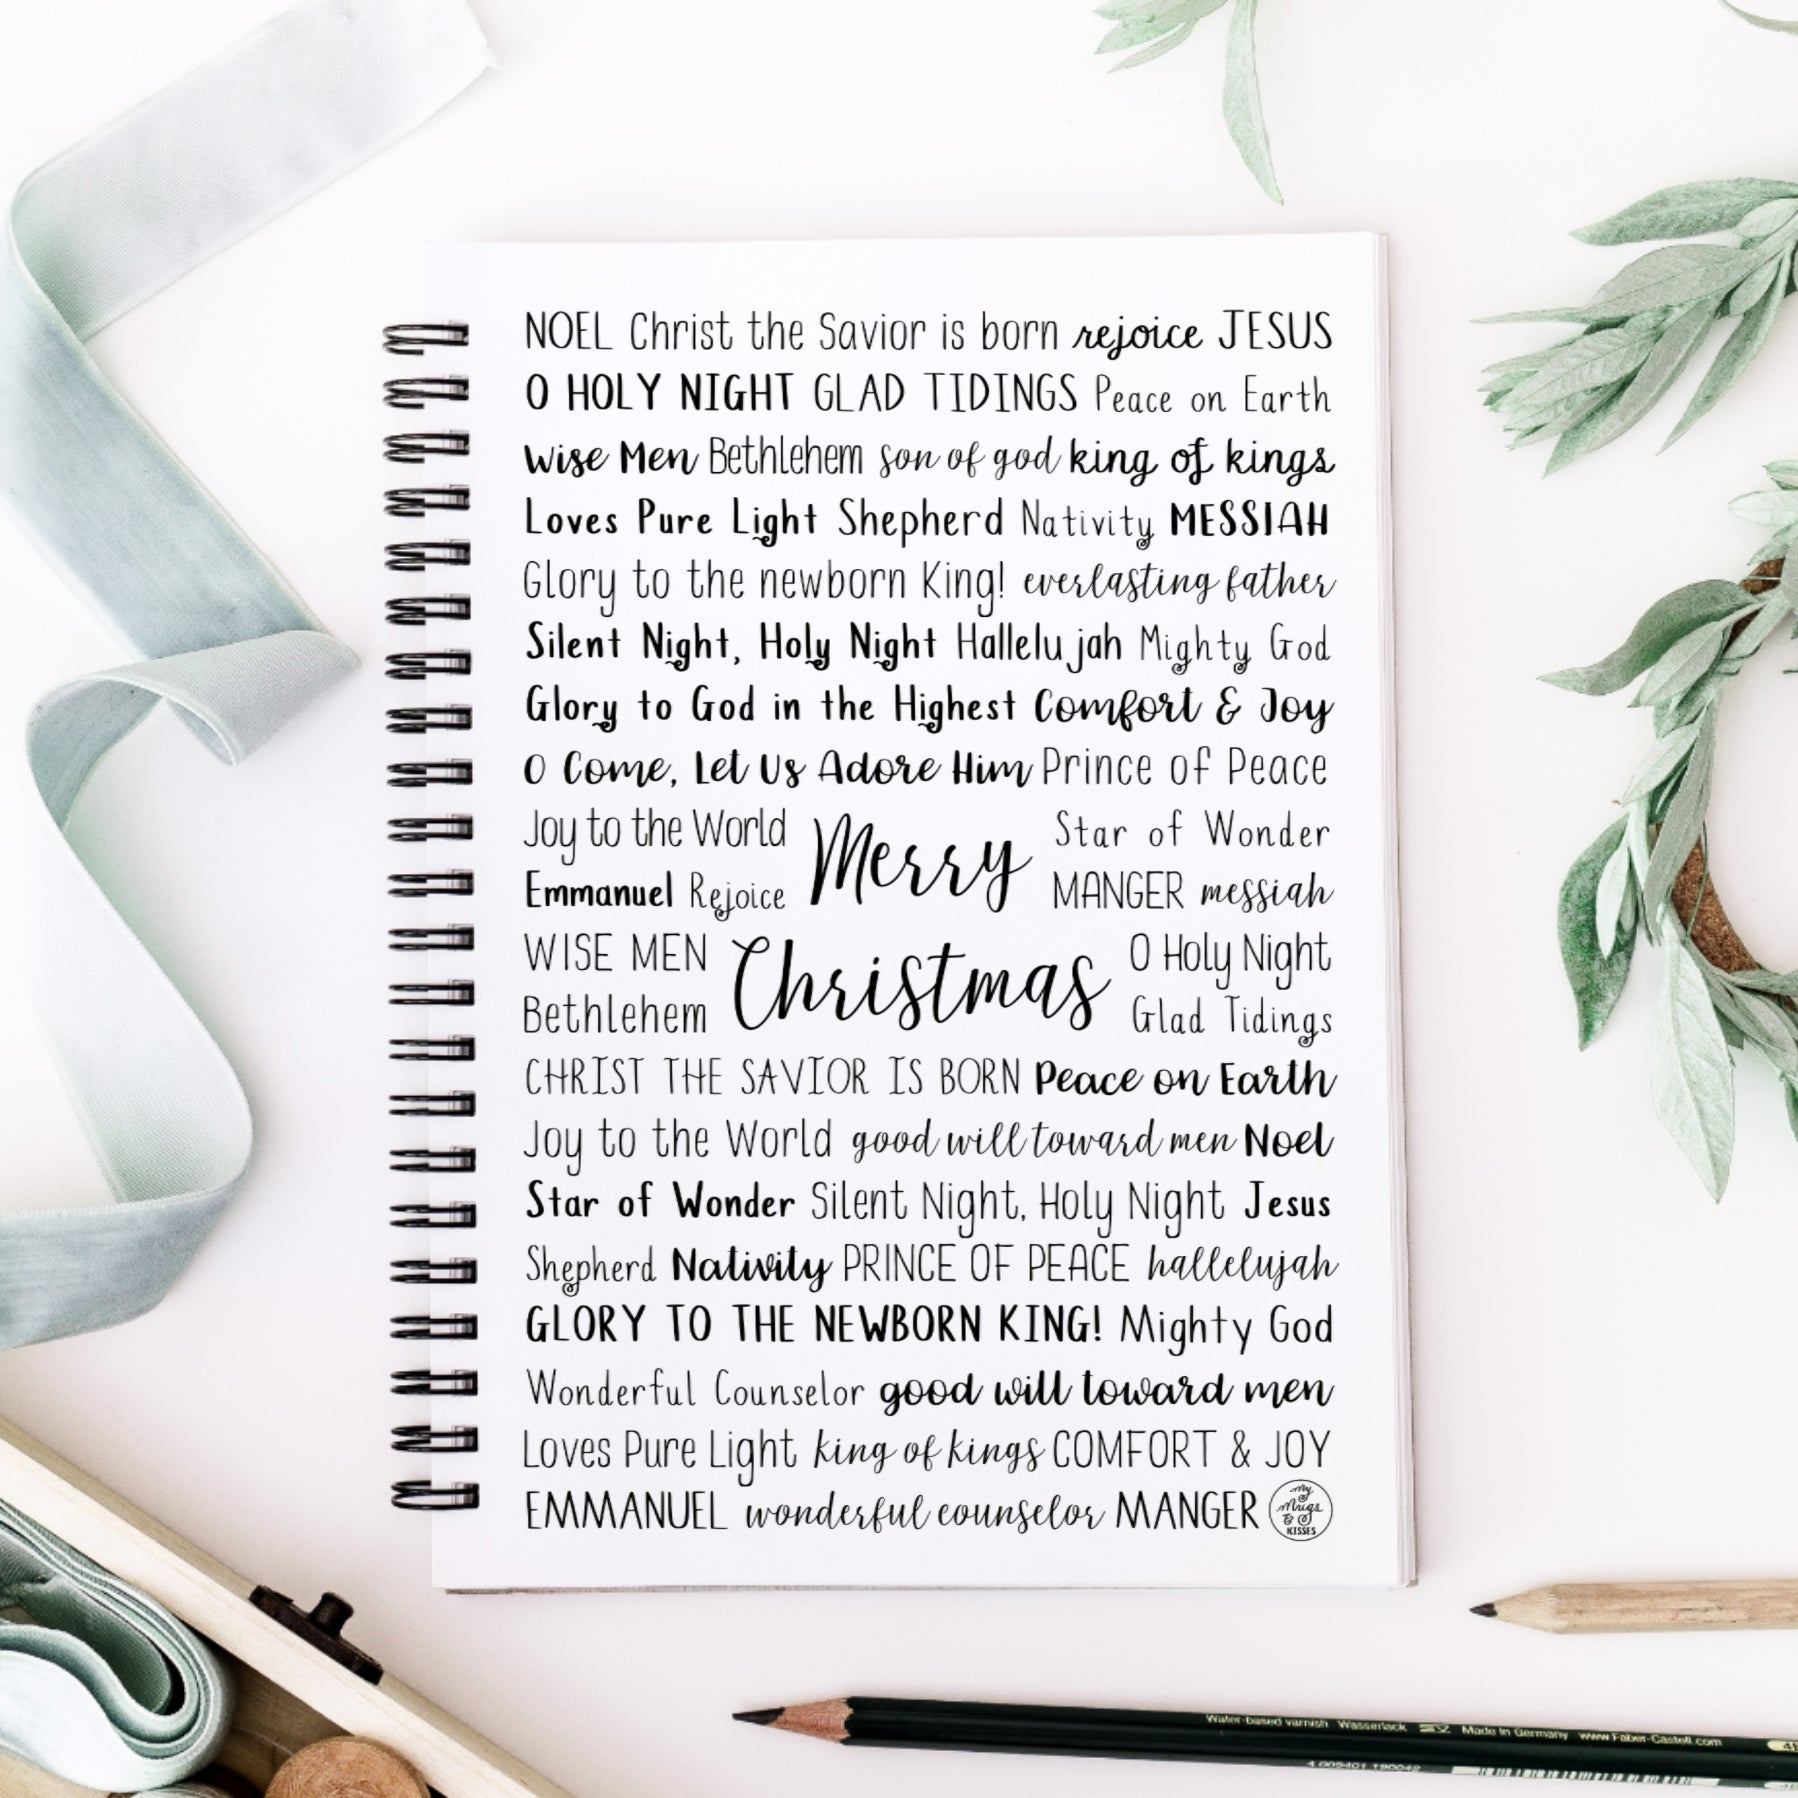 NOEL Christ the Savior is born rejoice JESUS
O HOLY NIGHT GLAD TIDINGS Peace on Earth
Wise Men Bethlehem son of god king of kings
Loves Pure Light Shepherd Nativity MESSIAH
Glory to the newborn King! everlasting father
Silent Night, Holy Night Hallelujah Mighty God
Glory to God in the Highest Comfort & Joy
O Come, Let Us Adore Him Prince of Peace
Joy to the World Star of Wonder
Merry
Emmanuel Rejoice MANGER messiah
WISE MEN O Holy Night
Christmas
Bethlehem Glad Tidings
CHRIST THE SAVIOR IS BORN Peace on Earth
Joy to the World good will toward men Noel
Star of Wonder Silent Night, Holy Night Jesus
Shepherd Nativity PRINCE OF PEACE hallelujah
GLORY TO THE NEWBORN KING! Mighty God
Wonderful Counselor good will toward men
Loves Pure Light king of kings COMFORT & JOY
EMMANUEL wonderful counselor MANGER
My
Mugs
&
KISSES
Water-based varnish Wasserlack Made in Germany www.Faber-Castell.com
4 005401 190042